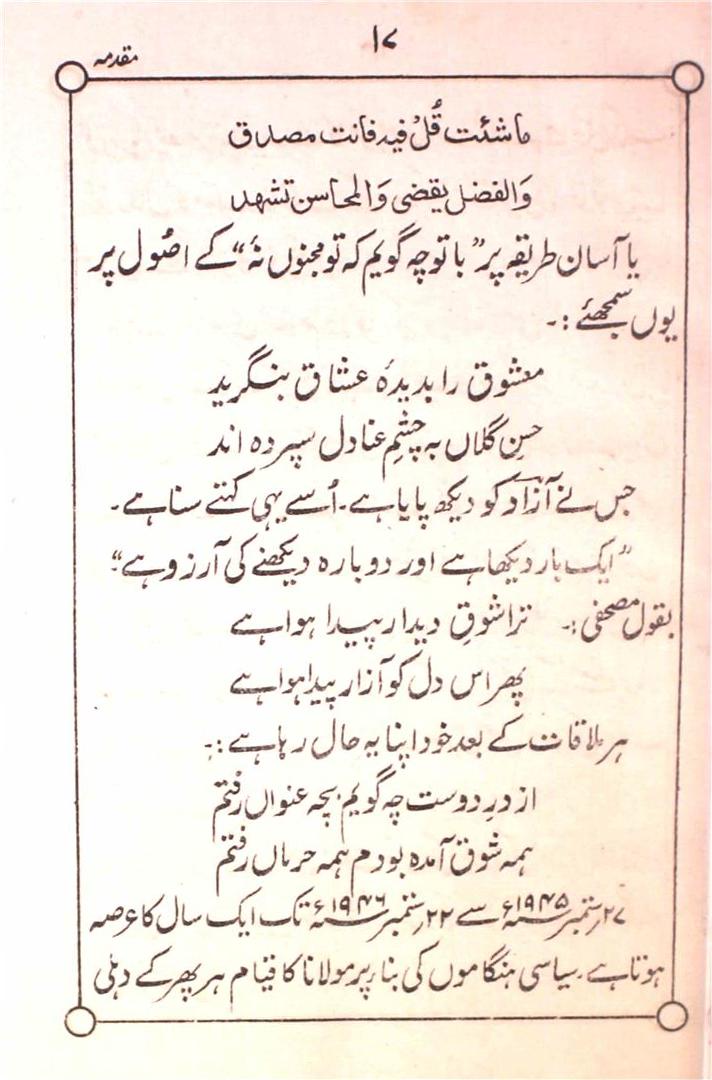 ۱۷
مقدمہ
ما شئت قُلْ فیہ فانت مصدق
وَالفضل یقضی وَالمحاسن تشھد
یا آسان طریقہ پر ”با تو چہ گویم کہ تو مجنوں نۂ“ کے اصُول پر
یوں سمجھئے :۔
معشوق را بدیدۂ عشاق بنگرید
حسنِ گلاں بہ چشمِ عنادل سپردہ اند
جس نے آزاد کو دیکھ پایا ہے۔ اُسے یہی کہتے سنا ہے۔
”ایک بار دیکھا ہے اور دوبارہ دیکھنے کی آرزو ہے“
بقول مصحفی :۔ ترا شوقِ دیدار پیدا ہوا ہے
پھر اس دل کو آزار پیدا ہوا ہے
ہر ملاقات کے بعد خود اپنا یہ حال رہا ہے :۔
از درِ دوست چہ گویم بچہ عنواں رفتم
ہمہ شوق آمدہ بودم ہمہ حرماں رفتم
۲۷؍ستمبر ۱۹۴۵؁ء سے ۲۲؍ستمبر ۱۹۴۶؁ء تک ایک سال کا عرصہ
ہوتا ہے۔ سیاسی ہنگاموں کی بنا پر مولانا کا قیام ہر پھر کے دہلی